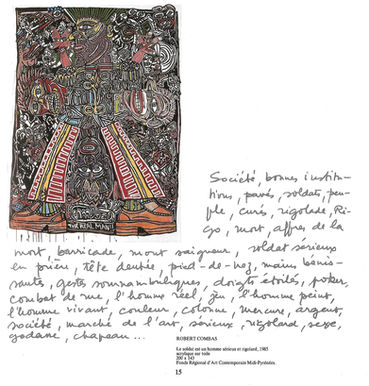 THE REAL MAN!
Société, bonnes institu-
tions, pavés, soldats, peu-
ple, curés, rigolade, Ri-
go, mort, affres de la
mort barricade, mont saigneur, soldat sérieux
en prière, tête dentée, pied-de-nez, mains bénis-
santes, gestes somnambuliques, doigts étoilés, poker,
combat de rue, l'homme réel, jeu, l'homme peint,
l'homme vivant, couleur, colonne, mercure, argent,
société, marché de l'art, sérieux, rigolard, sexe,
godasse, chapeau ...
ROBERT COMBAS
Le soldat est un homme sérieux et rigolard, 1985
acrylique sur toile
200 x 143
Fonds Régional d'Art Contemporain Midi-Pyrénées.
15